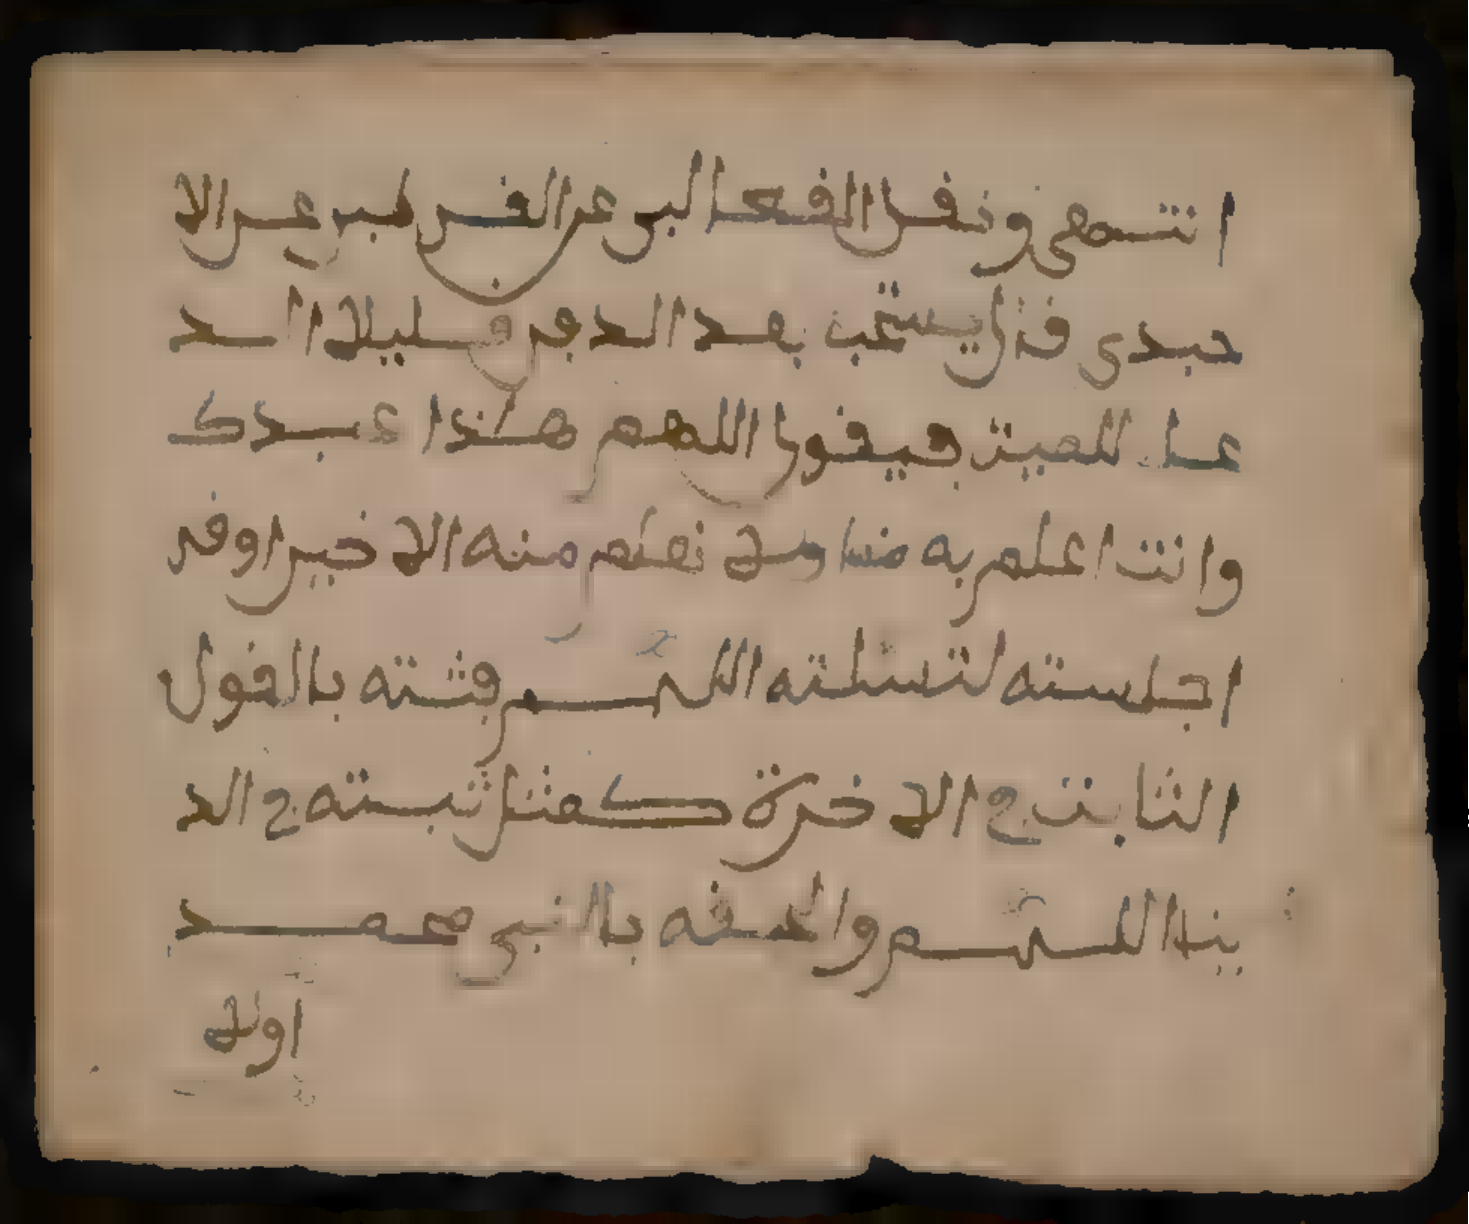 انتهى ونقل الثعالبي عن القرطبي عن الا
جدي قال يستحب بعد الدفن قليلا الد
عا للميت فيقول اللهم هذا عبدك
وانت اعلم به منا ولا نعلم منه الا خيرا وقد
اجلسته لتسئلته اللهم فثبته بالقول
الثابت في الاخرة كمثل ثبته في الد
نيا اللهم والحقه بالنبي محمد
اولا